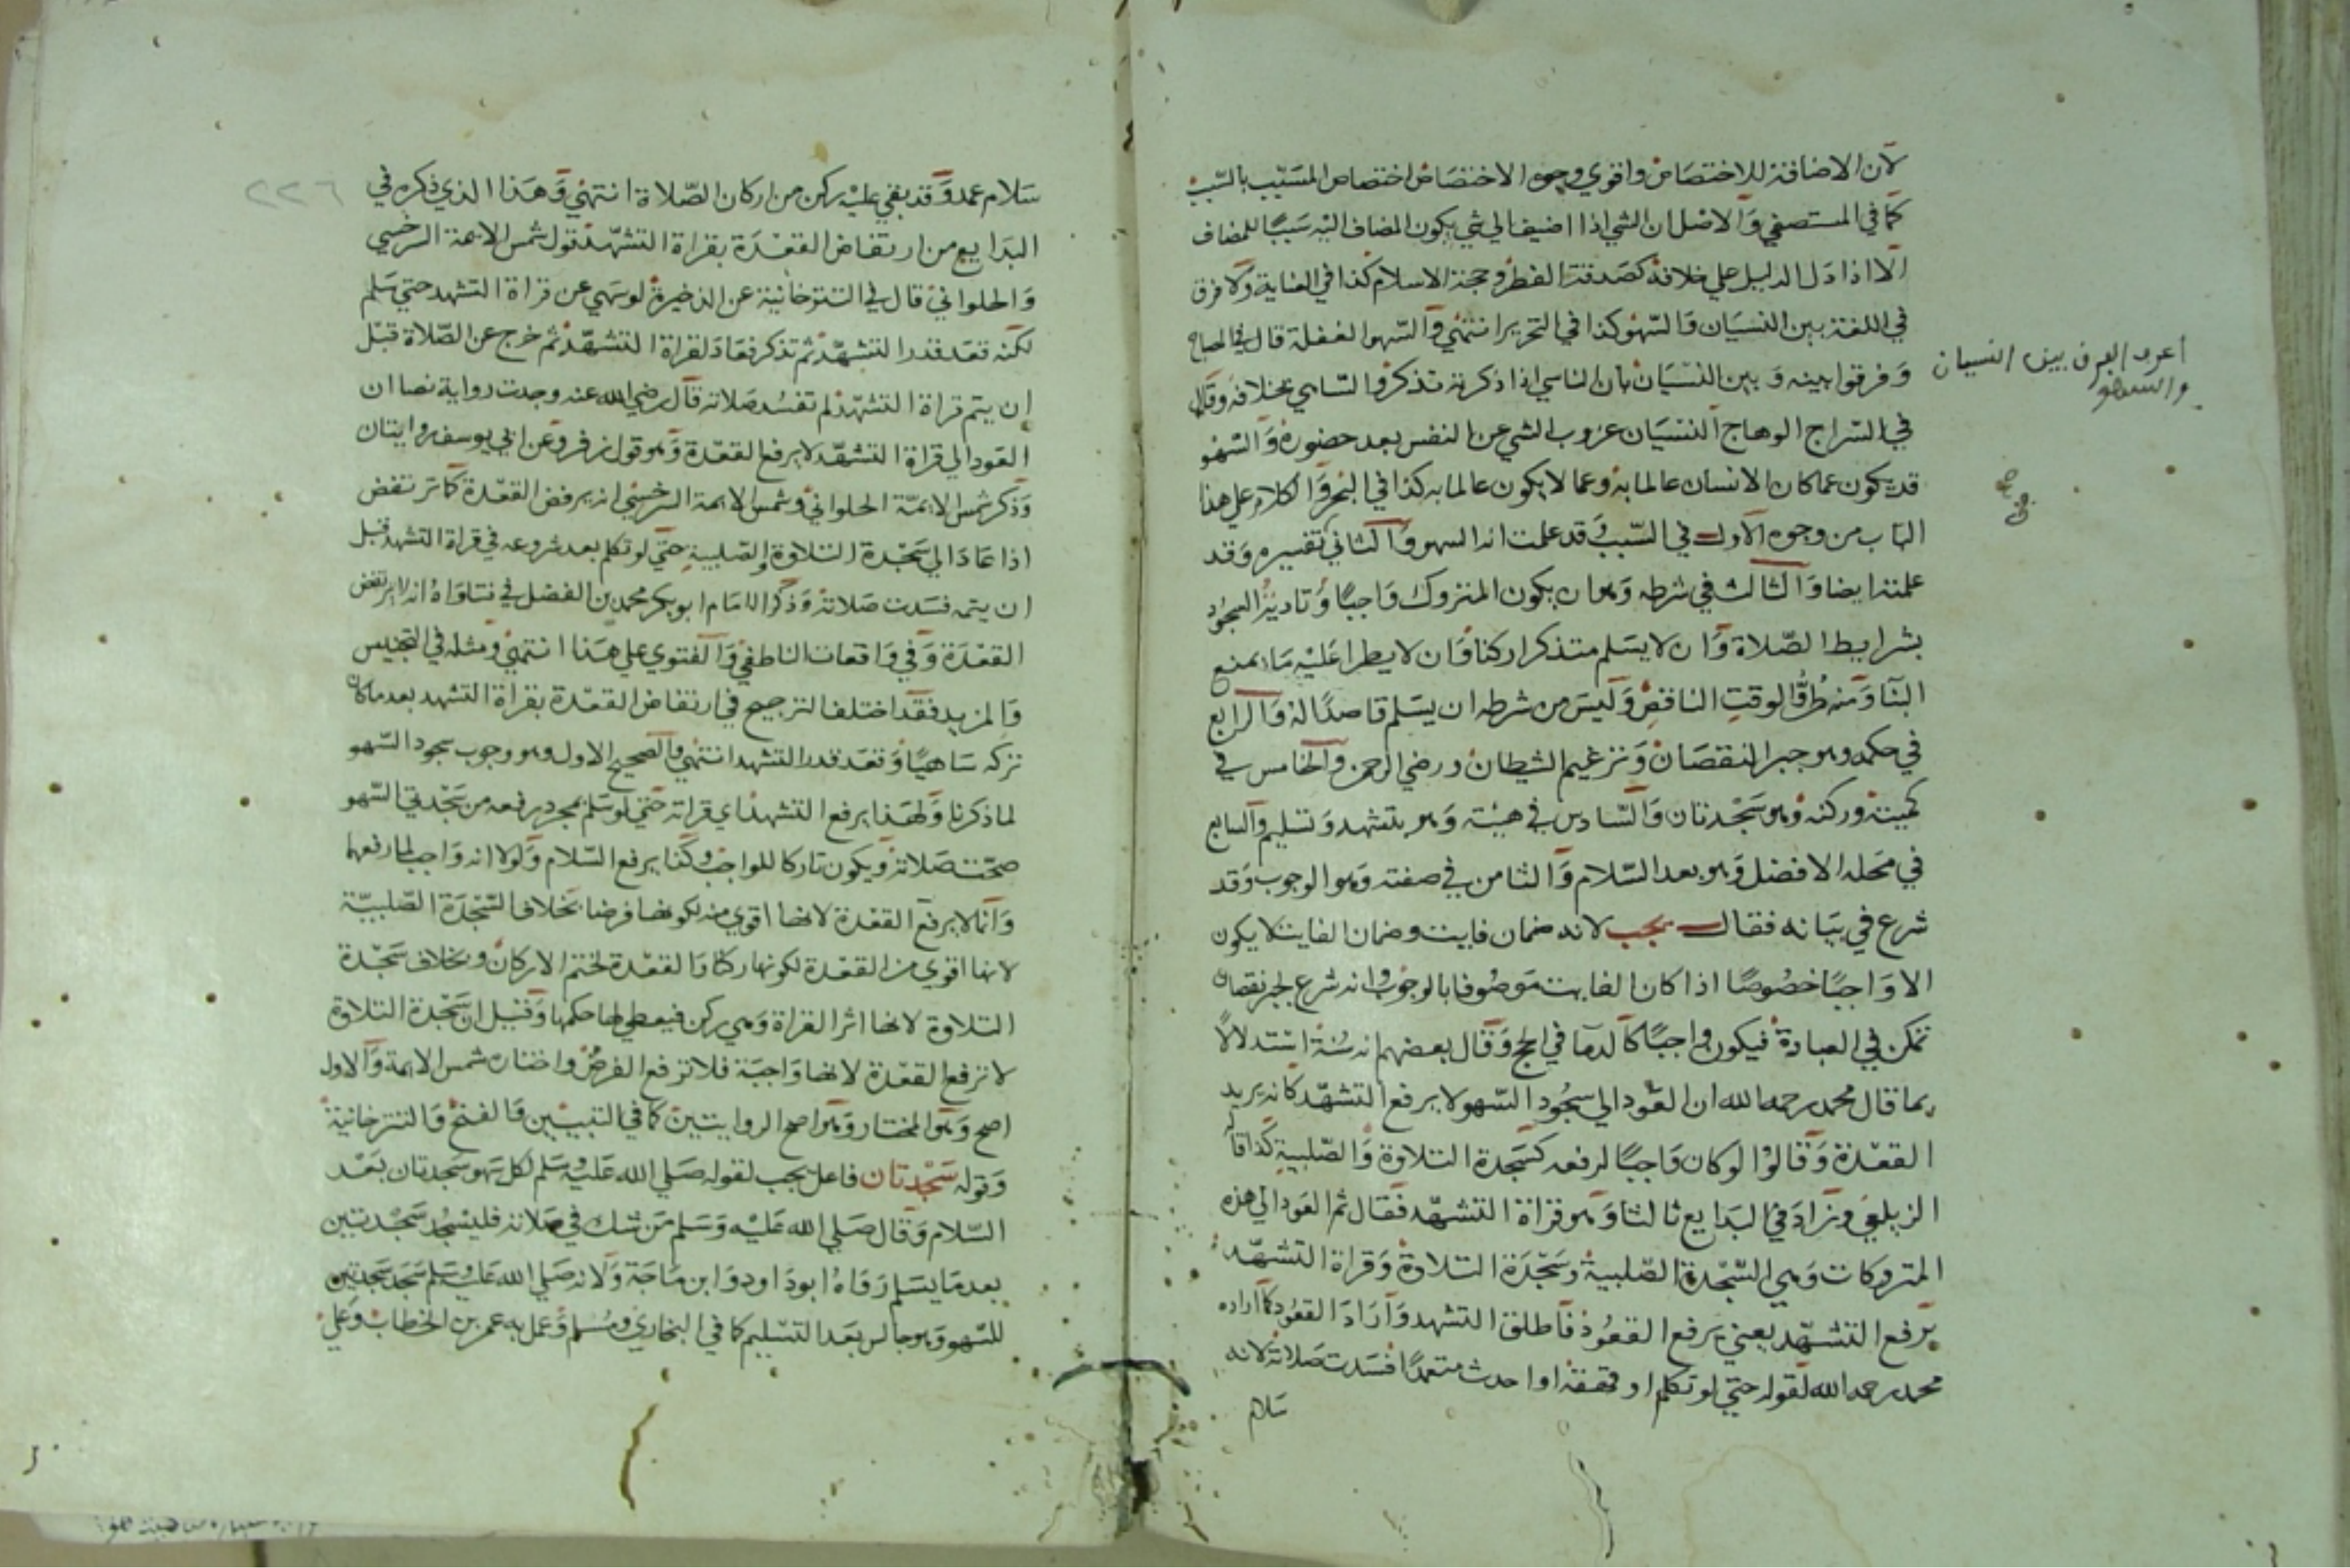 لان الاضافة للاختصاص واقوي وجوه الاختصاص اختصاص المسبب بالسبب
كما في المستصفي والاصل ان الشي اذا اضيف الي شي يكون المضاف اليه سببا للمضاف
الا اذا دل الدليل علي خلافه كصدقة الفطر وحجة الاسلام كذا في العناية ولا فرق
في اللغة بين النسيان والسهو كذا في التحرير انتهي والسهو الغفلة قال في المصباح
وفرقوا بينه وبين النسيان بان الناسي اذا ذكرته تذكر والساهي بخلافه وقال
اعرف الفرق بين النسيان
والسهو
في السراج الوهاج النسيان عزوب الشي عن النفس بعد حضوره والسهو
قد يكون عما كان الانسان عالما به وعما لا يكون عالما به كذا في البحر والكلام علي هذا
الباب من وجوه الاول في السبب وقد علمت انه السهو والثاني تفسيره وقد
علمته ايضا والثالث في شرطه وهو ان يكون المتروك واجبا وتادية السجود
بشرايط الصلاة وان لا يسلم متذكرا ركنا وان لا يطرا عليه ما يمنع
البنا ومنه طرو الوقت الناقص وليس من شرطه ان يسلم قاصدا له والرابع
في حكمه وهو جبر النقصان وترغيم الشيطان ورضي الرحمن والخامس في
كميته وركنه وهو سجدتان والسادس في هيئته وهو بتشهد وتسليم والسابع
في محله الافضل وهو بعد السلام والثامن في صفته وهو الوجوب وقد
شرع في بيانه فقال يجب لانه ضمان فايت وضمان الفايت لا يكون
الا واجبا خصوصا اذا كان الفايت موصوفا بالوجوب وانه شرع لجبر نقصان
تمكن في العبادة فيكون واجبا كالدما في الحج وقال بعضهم انه سنة استدلالا
بما قال محمد رحمه الله ان العود الي سجود السهو لا يرفع التشهد كانه يريد
القعدة وقالوا لو كان واجبا لرفعه كسجدة التلاوة والصلبية كذا قاله
الزيلعي وزاد في البدايع ثالثا وهو قراة التشهد فقال ثم العود الي هذه
المتروكات وهي السجدة الصلبية وسجدة التلاوة وقراة التشهد
يرفع التشهد يعني يرفع القعود فاطلق التشهد واراد القعود كما اراده
محمد رحمه الله لقوله حتي لو تكلم او قهقه او احدث متعمدا فسدت صلاته لانه
سلام
٢٢٦
سلام عمد وقد بقي عليه ركن من اركان الصلاة انتهي وهذا الذي ذكره في
البدايع من ارتفاض القعدة بقراة التشهد قول شمس الايمة السرخسي
والحلواني قال في التترخانية عن الذخيرة لو سهي عن قراة التشهد حتي سلم
لكنه قعد قدر التشهد ثم تذكر فعاد لقراة التشهد ثم خرج عن الصلاة قبل
ان يتم قراة التشهد لم تفسد صلاته قال رضي الله عنه وجدت رواية نصا ان
العود الي قراة التشهد لا يرفع القعدة وهو قول زفر وعن ابي يوسف روايتان
وذكر شمس الايمة الحلواني وشمس الايمة السرخسي انه يرفض القعدة كما ترتفض
اذا عاد الي سجدة التلاوة والصلبية حتي لو تكلم بعد شروعه في قراة التشهد قبل
ان يتمه فسدت صلاته وذكر الامام ابو بكر محمد بن الفضل في فتاواه انه لا يرتفض
القعدة وفي واقعات الناطفي والفتوي علي هذا انتهي ومثله في التجنيس
والمزيد فقد اختلف الترجيح في ارتفاض القعدة بقراة التشهد بعد ما كان
تركه ساهيا وقعد قدر التشهد انتهي والصحيح الاول وهو وجوب سجود السهو
لما ذكرنا ولهذا يرفع التشهد اي قراته حتي لو سلم بمجرد رفعه من سجدتي السهو
صحت صلاته ويكون تاركا للواجب وكذا يرفع السلام ولولا انه واجب لما رفعهما
وانما لا يرفع القعدة لانها اقوي منه لكونها فرضا بخلاف السجدة الصلبية
لانها اقوي من القعدة لكونها ركنا والقعدة لختم الاركان وبخلاف سجدة
التلاوة لانها اثر القراة وهي ركن فيعطي لها حكمها وقيل ان سجدة التلاوة
لا ترفع القعدة لانها واجبة فلا ترفع الفرض واختاره شمس الايمة والاول
اصح وهو المختار وهو اصح الروايتين كما في التبيين والفتح والتترخانية
وقوله سجدتان فاعل يجب لقوله صلي الله عليه وسلم لكل سهو سجدتان بعد
السلام وقال صلي الله عليه وسلم من شك في صلاته فليسجد سجدتين
بعد ما يسلم رواه ابو داود وابن ماجة ولانه صلي الله عليه وسلم سجد سجدتين
للسهو وهو جالس بعد التسليم كما في البخاري ومسلم وعمل به عمر بن الخطاب وعلي